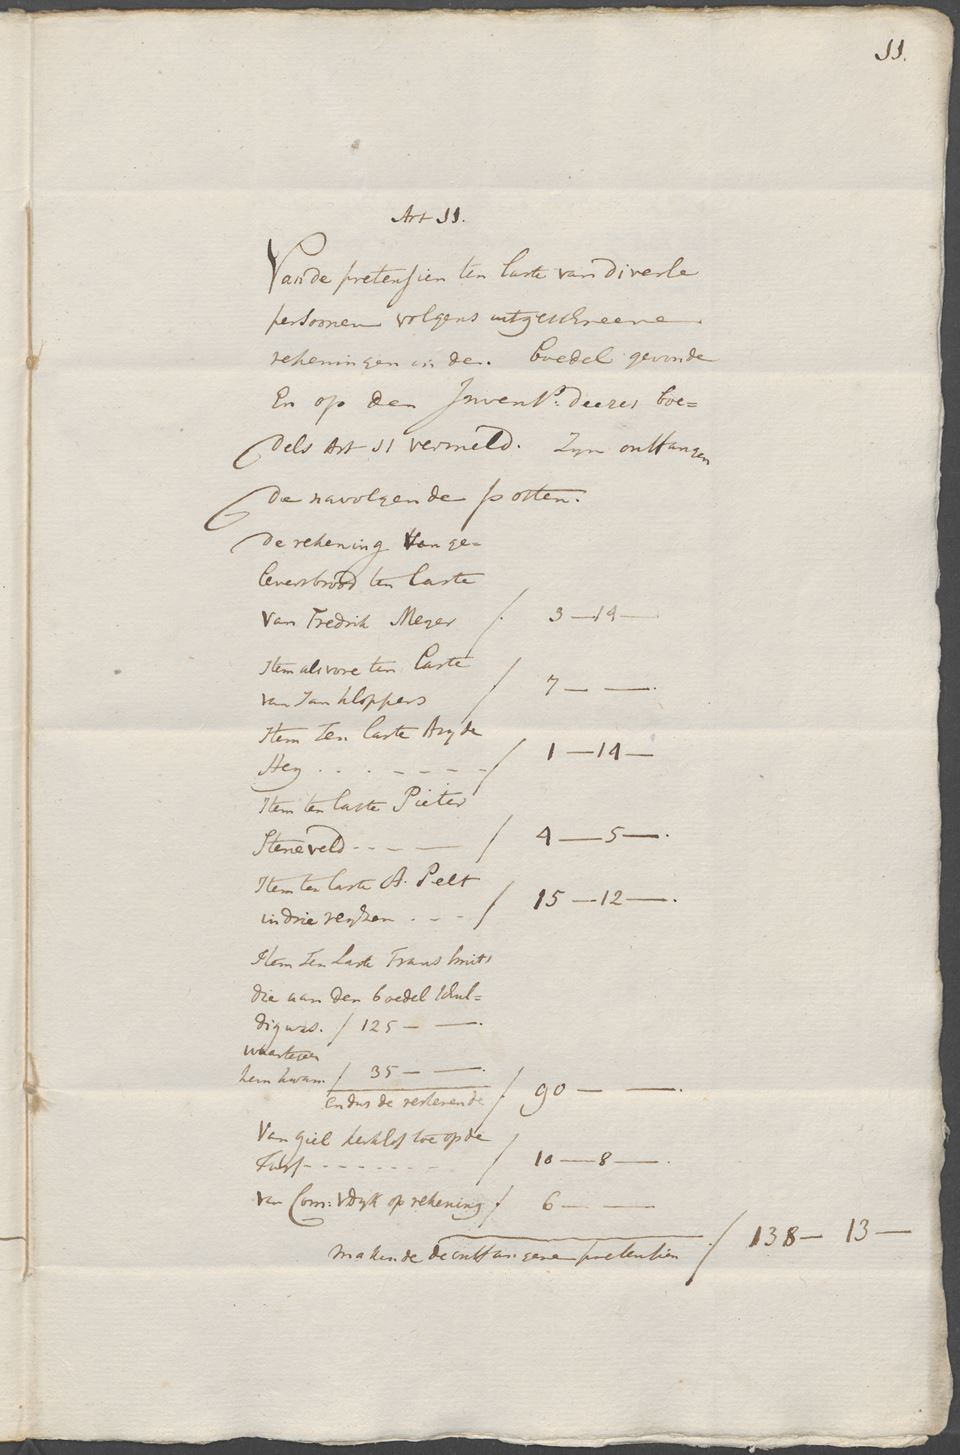 11.
Art 11.
Van de pretensien ten laste van diverse
persoonen volgens uitgeschreeve
rekeningen in de. boedel gevonde
En op den Invents. deezes boe=
dels Art 11 vermeld. Zyn ontfangen
de navolgende posten.
De rekening van ge=
leverd brood ten laste
van Fredrik Meyer / 3—14—
Item als vore ten laste
van Jan Kloppers / 7— —.
Item Ten laste Ary de
Hey . . . - - - - - / 1—14—
Item ten laste Pieter
Steneveld - - - — — / 4—5—.
Item ten laste A. Pelt
in drie reyzen . - - / 15—12—.
Item Ten laste Frans Smits
die aan den boedel schul=
dig was. / 125— —.
waartegen
hem kwam / 35— —.
en dus de resterende / 90— —.
Van Giel Kerkhof toe op de
Turf - - - - - - - - / 10—8—.
van Corn: vdyk op rekening / 6— —
makende de ontfangene pretensien / 138— 13—